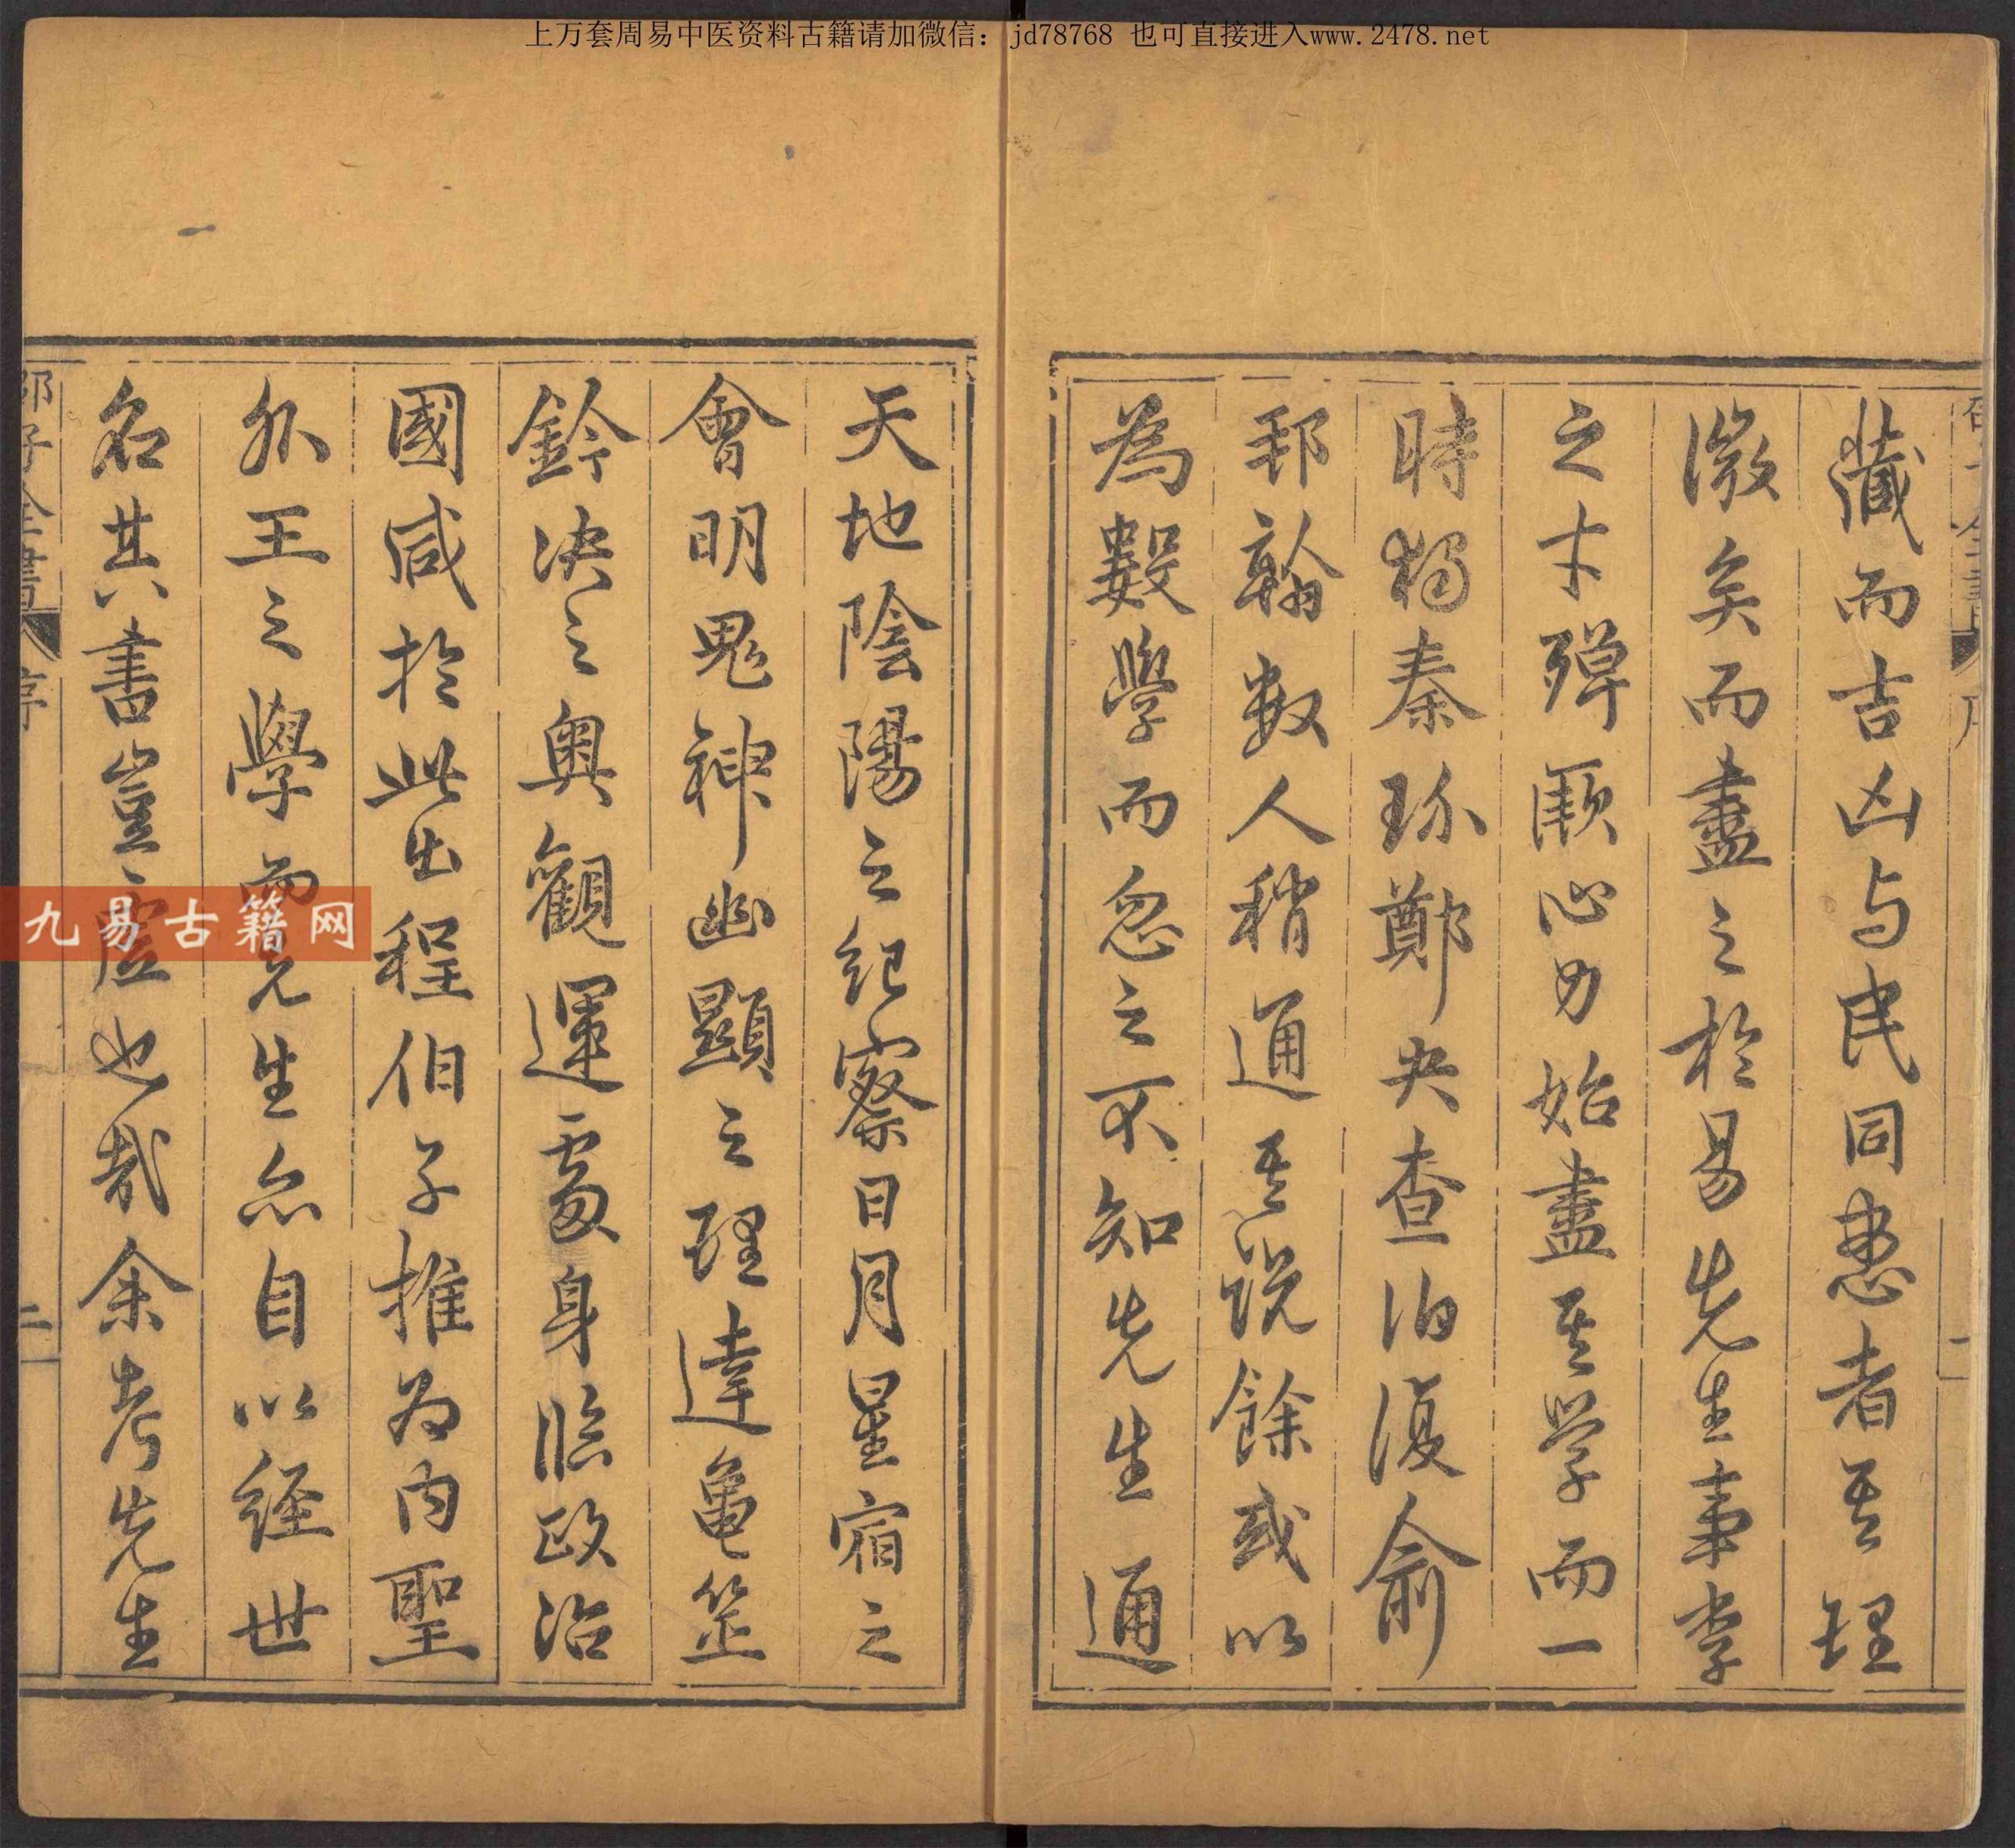 上万套周易中医资料古籍请加微信：jd78768 也可直接进入www.2478.net
藏而吉凶与民同患者其理
微矣而盡之於易先生事李
之才殫厥心力始盡其学而一
時獨秦玠鄭夬查伯復俞
邽翰数人稍通其説餘或以
為數學而忽之不知先生通
天地陰陽之紀察日月星宿之
會明鬼神幽顯之理達龜筮
鈐决之奥觀運處身臨政治
國咸於此出程伯子推为内聖
外王之學而先生亦自以經世
名其書豈虛也哉余考先生
邵子全書 序 二
九易古籍网